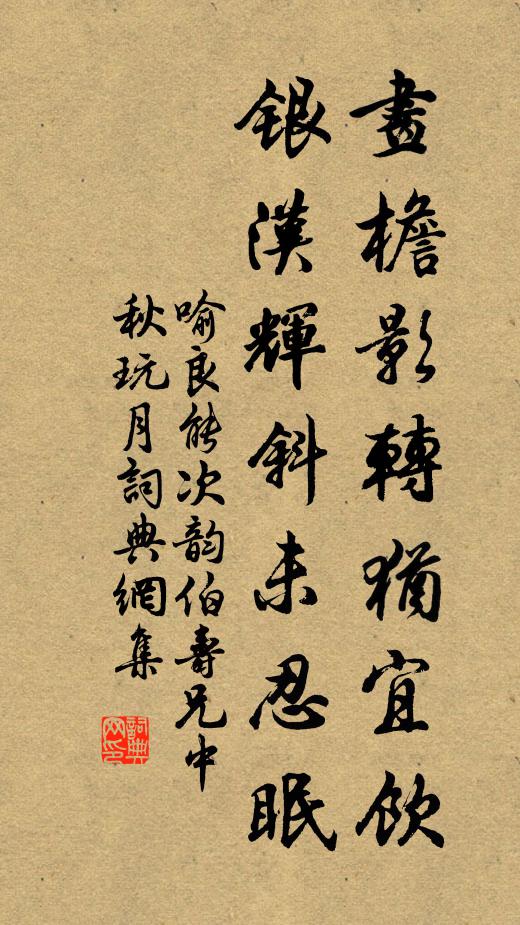 畫檐影轉猶宜飲
銀漢輝斜未忍眠
喻良能次韵伯壽兄中
秋玩月詞典網集
詞典
网印